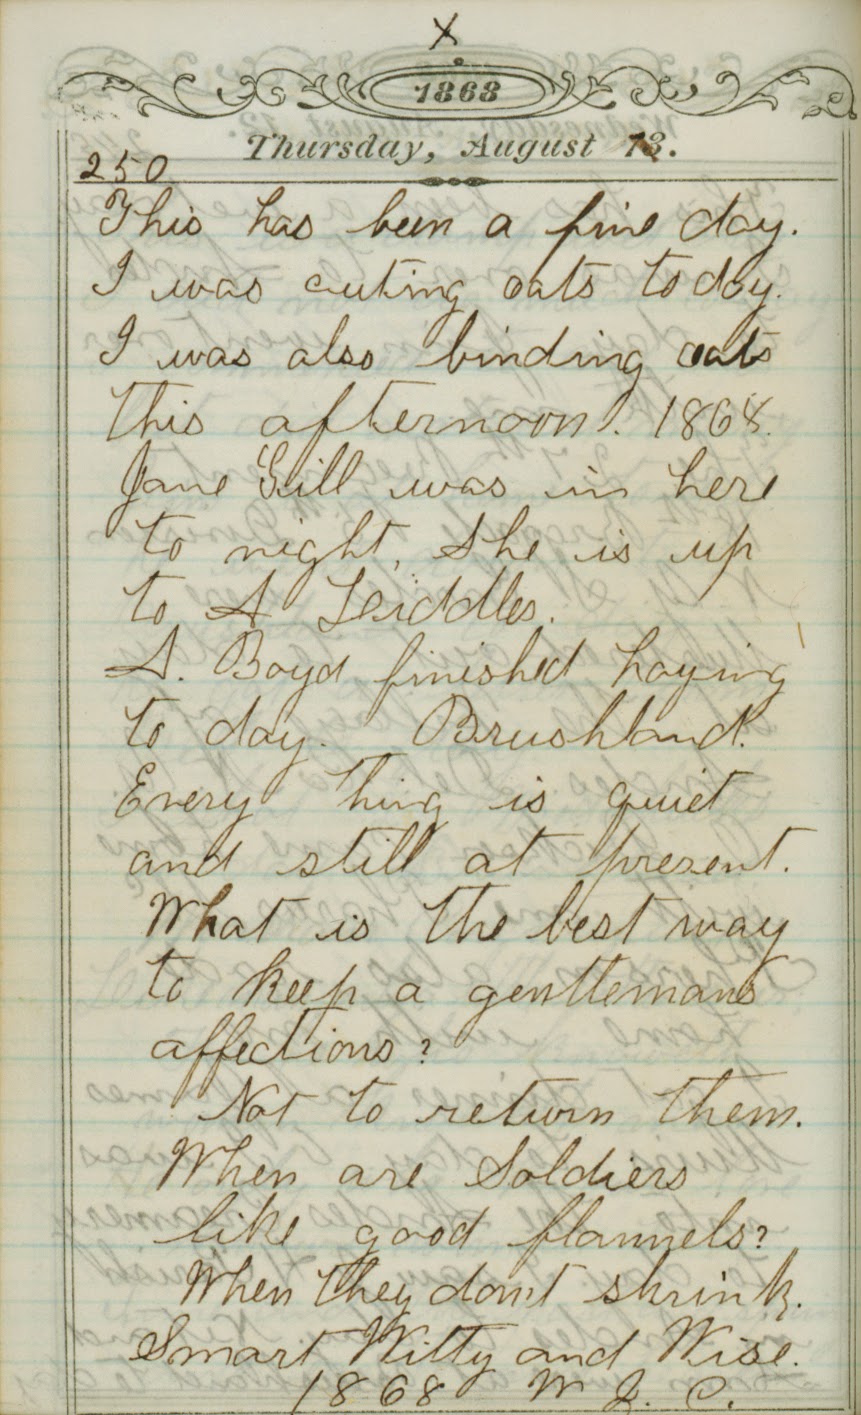 X
1868
Thursday, August 13.
250
This has been a fine day.
I was cuting oats to day.
I was also binding oats
this afternoon. 1868.
Jane Gill was in here
to night, She is up
to A
A. Boyd finished haying
to day. Brushland.
Every thing is quiet
and still at present.
What is the best way
to keep a genttemans
affections?
Not to return them.
When are Soldiers
like good flannels?
When they dont shrink.
Smart Witty and Wise.
1868 W J. C.